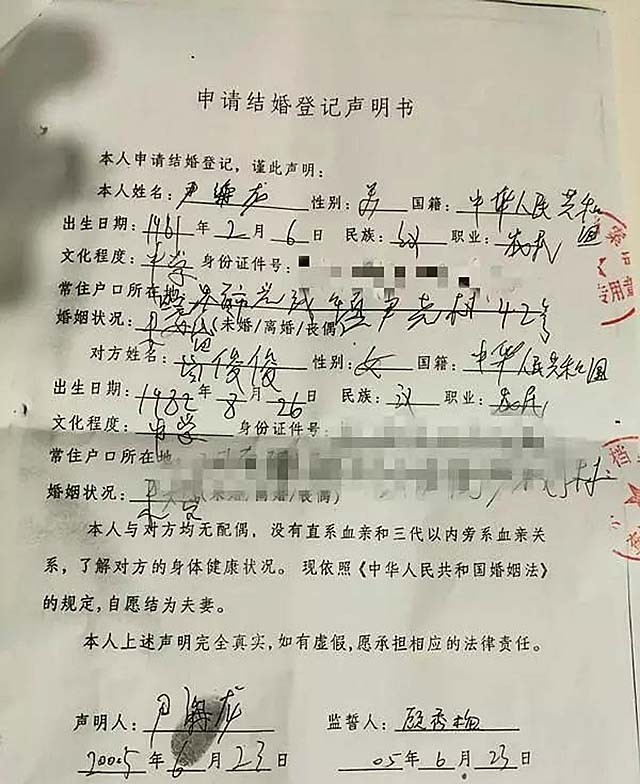 申请结婚登记声明书
本人申请结婚登记，谨此声明：
本人姓名：尹 龙 性别：男 国籍：中华人民共和国
出生日期：1981 年 2 月 6 日 民族：汉 职业：农民
文化程度：中学 身份证件号：
常住户口所在地 镇尹 村42号
婚姻状况：未婚 (未婚/离婚/丧偶)
对方姓名：俊俊 性别：女 国籍：中华人民共和国
出生日期：1982 年 8 月 26 日 民族：汉 职业：农民
文化程度：中学 身份证件号：
常住户口所在地 村
婚姻状况：未婚 (未婚/离婚/丧偶)
本人与对方均无配偶，没有直系血亲和三代以内旁系血亲关
系，了解对方的身体健康状况。现依照《中华人民共和国婚姻法》
的规定，自愿结为夫妻。
本人上述声明完全真实，如有虚假，愿承担相应的法律责任。
声明人：尹 龙 监誓人：顾秀梅
2005 年 6 月 23 日 05 年 6 月 23 日
专用章
档